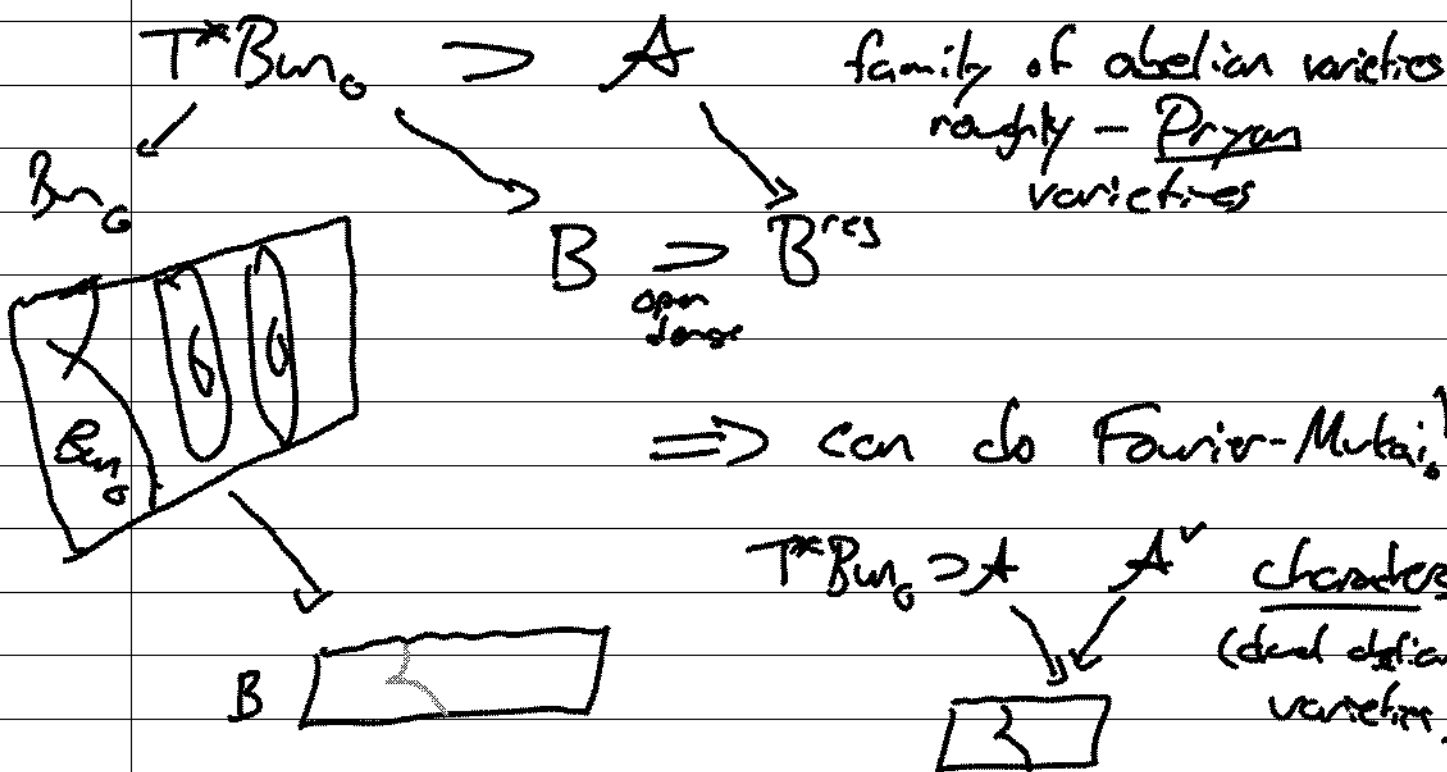 T*Bun_G ⊃ A family of abelian varieties
roughly - Prym
varieties
Bun_G
B ⊃ B^reg
open
dense
Bun_G
⇒ can do Fourier-Mukai!
T*Bun_G ⊃ A A^∨ characters
(dual abelian
varieties
B